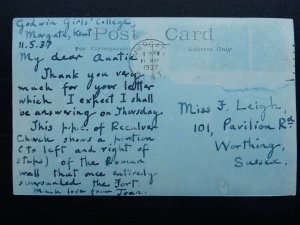 Godwin Girls' College,
Margate, Kent
11.5.37
Post Card
For Correspondence
Address Only
1937
My dear Auntie
Thank you very
much for your letter
which I expect I shall
be answering on Thursday
This p.p.c. of Reculver
Church shows a portion
(to left and right of
steps) of the Roman
wall that once entirely
surrounded the Fort.
Much love from Jean.
Miss F. Leigh,
101, Pavilion Rd
Worthing,
Sussex.